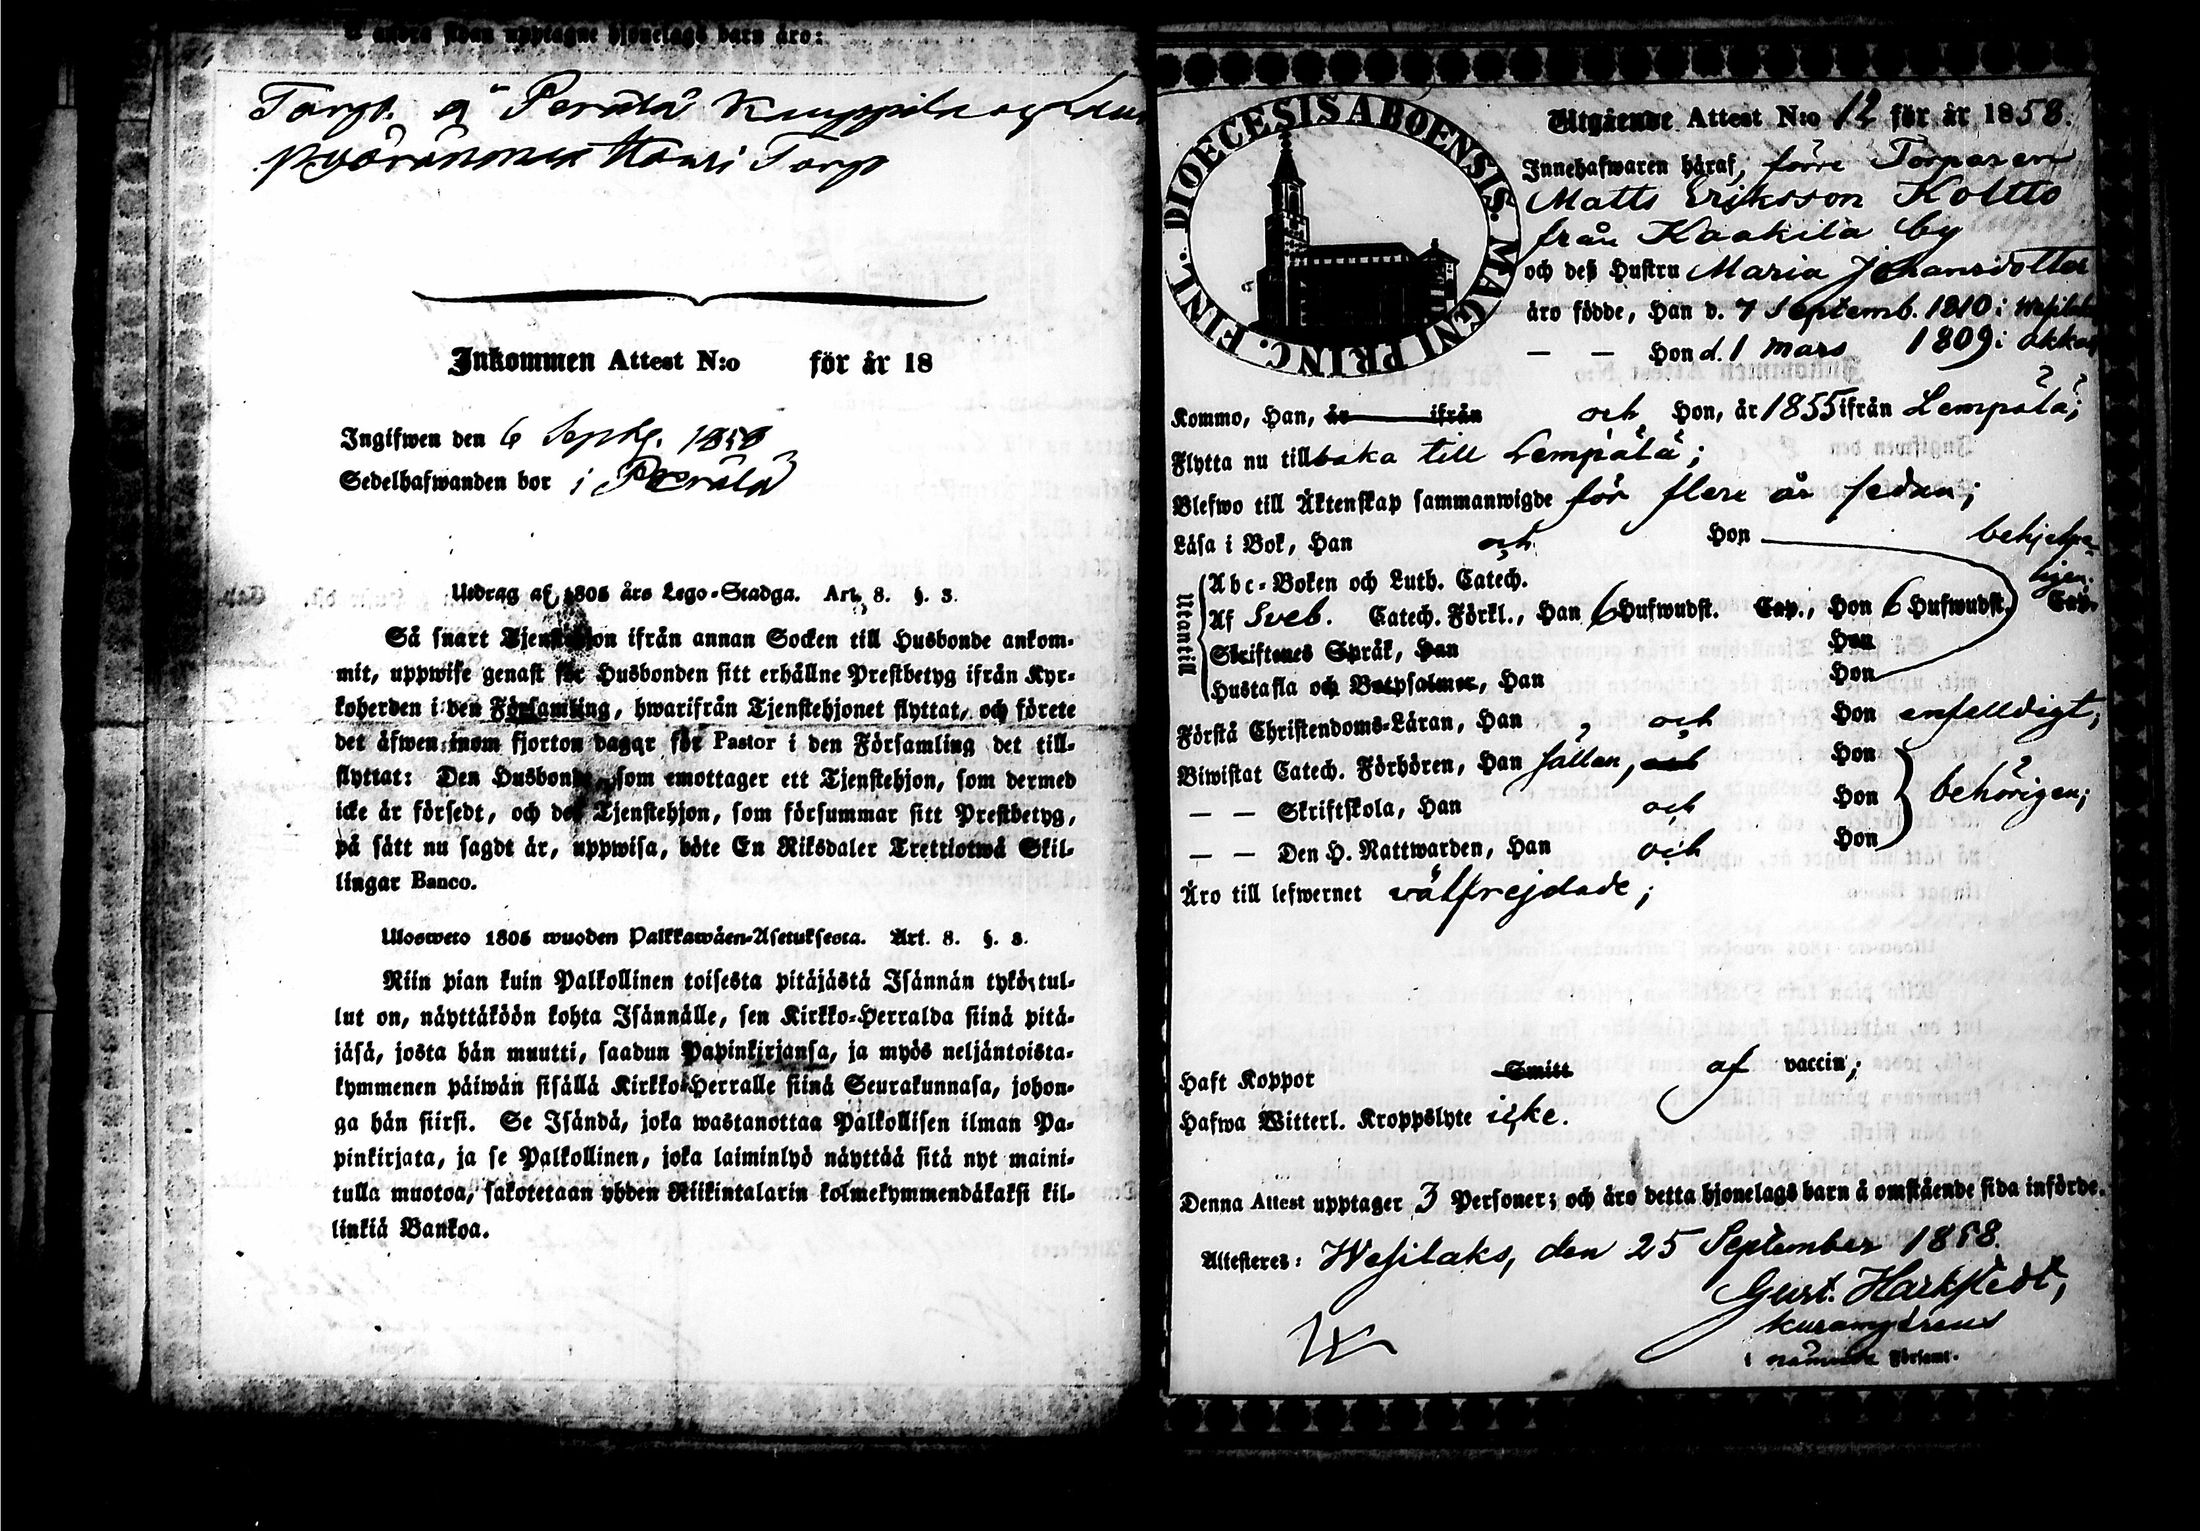 å andra sidan upptagne hjonelags barn äro:
Torp. å Perälä Kauppila
Mauri Torp
Inkommen Attest N:o för år 18
Ingifwen den 6 Septbr. 1858
Sedelhafwanden bor i Perälä
Utdrag af 1805 års Lego-Stadga. Art. 8. §. 3.
Så snart Tjenstehjon ifrån annan Socken till Husbonde ankom-
mit, uppwise genast för Husbonden sitt erhållne Prestbetyg ifrån Kyr-
koherden i den Församling, hwarifrån Tjenstehjonet flyttat, och förete
det äfwen inom fjorton dagar för Pastor i den Församling det till-
flyttat: Den Husbonde, som emottager ett Tjenstehjon, som dermed
icke är försedt, och det Tjenstehjon, som försummar sitt Prestbetyg,
på sätt nu sagdt är, uppwisa, böte En Riksdaler Trettiotwå Skil-
lingar Banco.
Uloswето 1805 wuoden Palkkawäen-Asetuksesta. Art. 8. §. 3.
Niin pian kuin Palkollinen toisesta pitäjästä Isännän tykö tul-
lut on, näyttäköön kohta Isännälle, sen Kirkko-Herralda siinä pitä-
jäsä, josta hän muutti, saadun Papinkirjansa, ja myös neljäntoista-
kymmenen päiwän sisällä Kirkko-Herralle siinä Seurakunnasa, johon-
ga hän siirsi. Se Isändä, joka wastanottaa Palkollisen ilman Pa-
pinkirjata, ja se Palkollinen, joka laiminlyö näyttää sitä nyt maini-
tulla muotoa, sakotetaan yhden Riikintalarin kolmekymmendäkaksi kil-
linkiä Bankoa.
FINL. DIOECESIS ABOENSIS. MAGNI PRINC.
Utgående Attest N:o 12 för år 1858.
Innehafwaren häraf, förre Torparen
Matts Eriksson Koltto
från Kaakila by
och deß Hustru Maria Johansdotter
äro födde, Han d. 7 Septemb. 1810 i Wesilaks
— — Hon d. 1 mars 1809 i Akkas
Kommo, Han, år ifrån och Hon, år 1855 ifrån Lempälä;
Flytta nu tillbaka till Lempälä;
Blefwo till Äktenskap sammanwigde för flere år sedan;
Läsa i Bok, Han och Hon behjelpe-
ligen.
Utantill
Abc-Boken och Luth. Catech.
Af Sveb. Catech. Förkl., Han 6 Hufwudst. Cap., Hon 6 Hufwudst. Cap.
Skriftenes Språk, Han Hon
Hustafla och Botpsalmer, Han Hon
Förstå Christendoms-Läran, Han och Hon enfelldigt;
Biwistat Catech. Förhören, Han sällan, och Hon
— — Skriftskola, Han och Hon behörigen;
— — Den H. Nattwarden, Han och Hon
Äro till lefwernet välfrejdade;
Haft Koppor Smitt af vaccin;
Hafwa Witterl. Kroppslyte icke.
Denna Attest upptager 3 Personer; och äro detta hjonelags barn å omstående sida införde.
Attesteres: Wesilaks, den 25 September 1858.
Gust. Harkstedt,
i nämnde Församl.